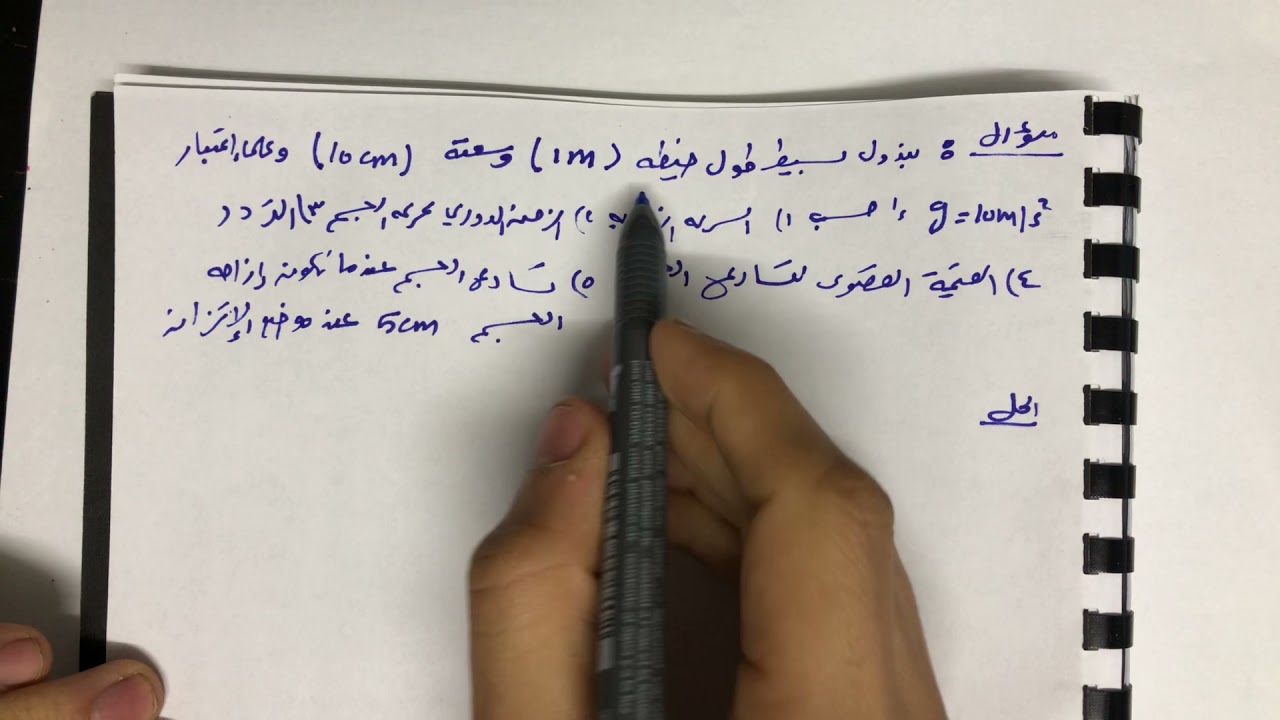 سؤال : بندول بسيط طول خيطه (1m) وسعته (10cm) وعلى اعتبار
g = 10 m/s² احسب ١) السرعة ٢) الزمن الدوري لحركة الجسم ٣) التردد
٤) القيمة القصوى لتسارع ٥) تسارع الجسم عندما تكون إزاحة
الجسم 5cm عن موضع الإتزان
الحل